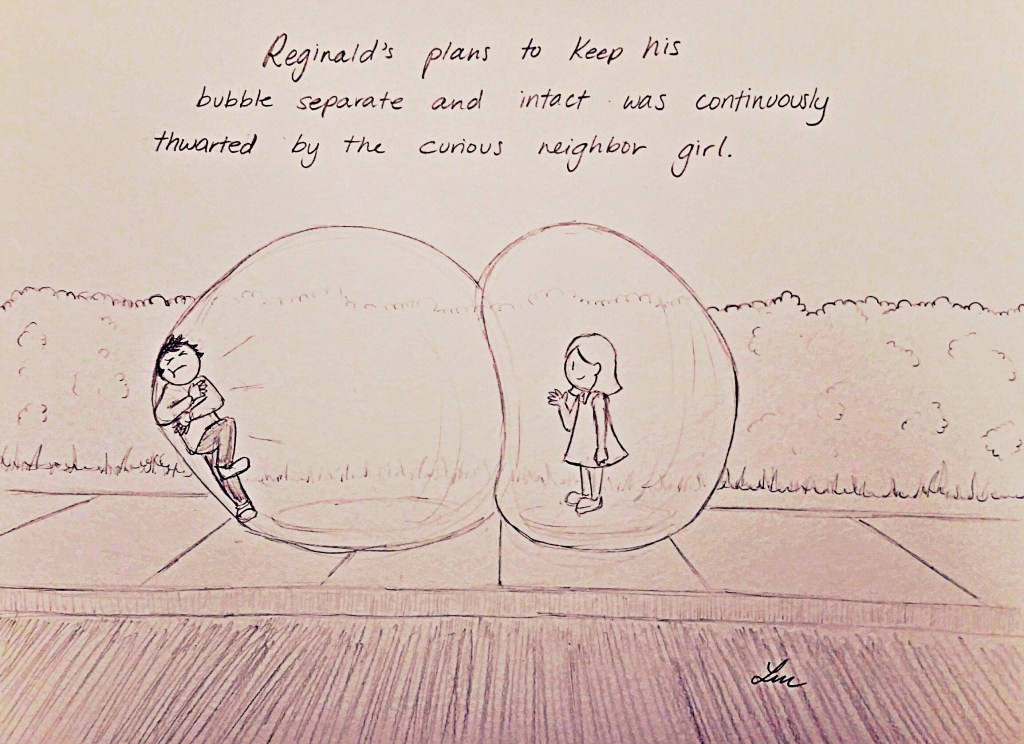 Reginald's plans to keep his
bubble separate and intact was continuously
thwarted by the curious neighbor girl.